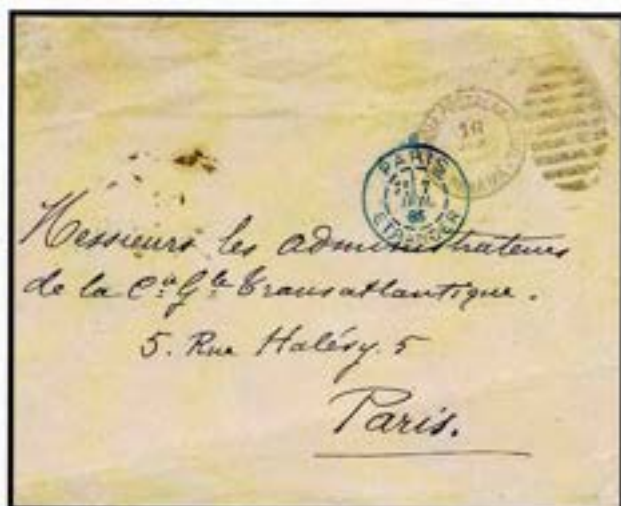 PARIS
7
ETRANGER
Messieurs les administrateurs
de la Cie Gle Transatlantique.
5. Rue Halévy. 5
Paris.